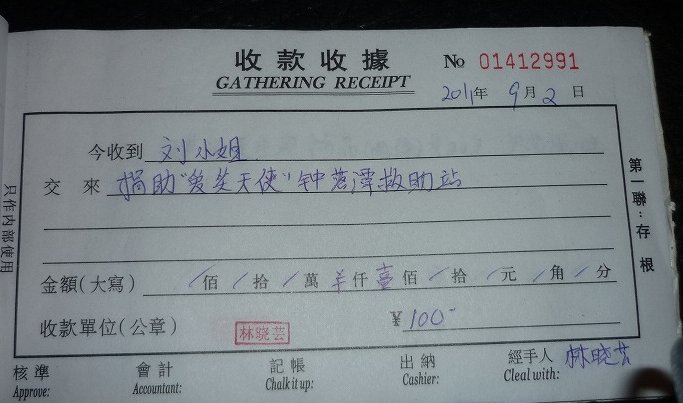 收款收據 No 01412991
GATHERING RECEIPT
2011年 9月 2日
今收到 刘小姐
交來 捐助"爱笑天使"钟落潭救助站
金額(大寫) / 佰 / 拾 / 萬 羊 仟 壹 佰 / 拾 / 元 / 角 / 分
收款單位(公章) 林晓芸 ¥ 100-
核準 會計 記帳 出納 經手人 林晓芸
Approve: Accountant: Chalk it up: Cashier: Cleal with:
只作内部使用
第一聯:存根